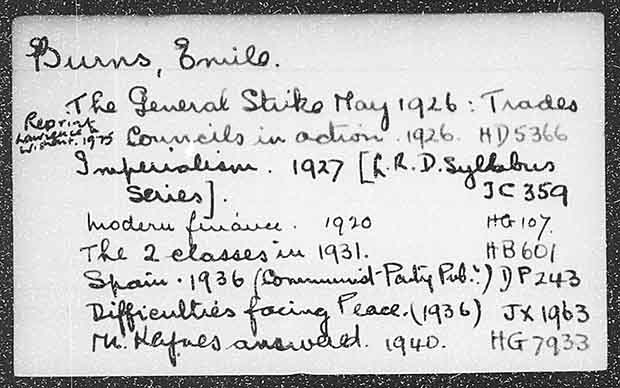 Burns, Emile.
The General Strike May 1926: Trades
Reprint
Lawrence &
Wishart. 1975
Councils in action. 1926. HD5366
Imperialism. 1927 [L.R.D. Syllabus
Series]. JC 359
Modern finance. 1920 HG107.
The 2 classes in 1931. HB601
Spain. 1936 (Communist Party Pub.:) DP243
Difficulties facing Peace. (1936) JX1963
Mr. Keynes answered. 1940. HG7933